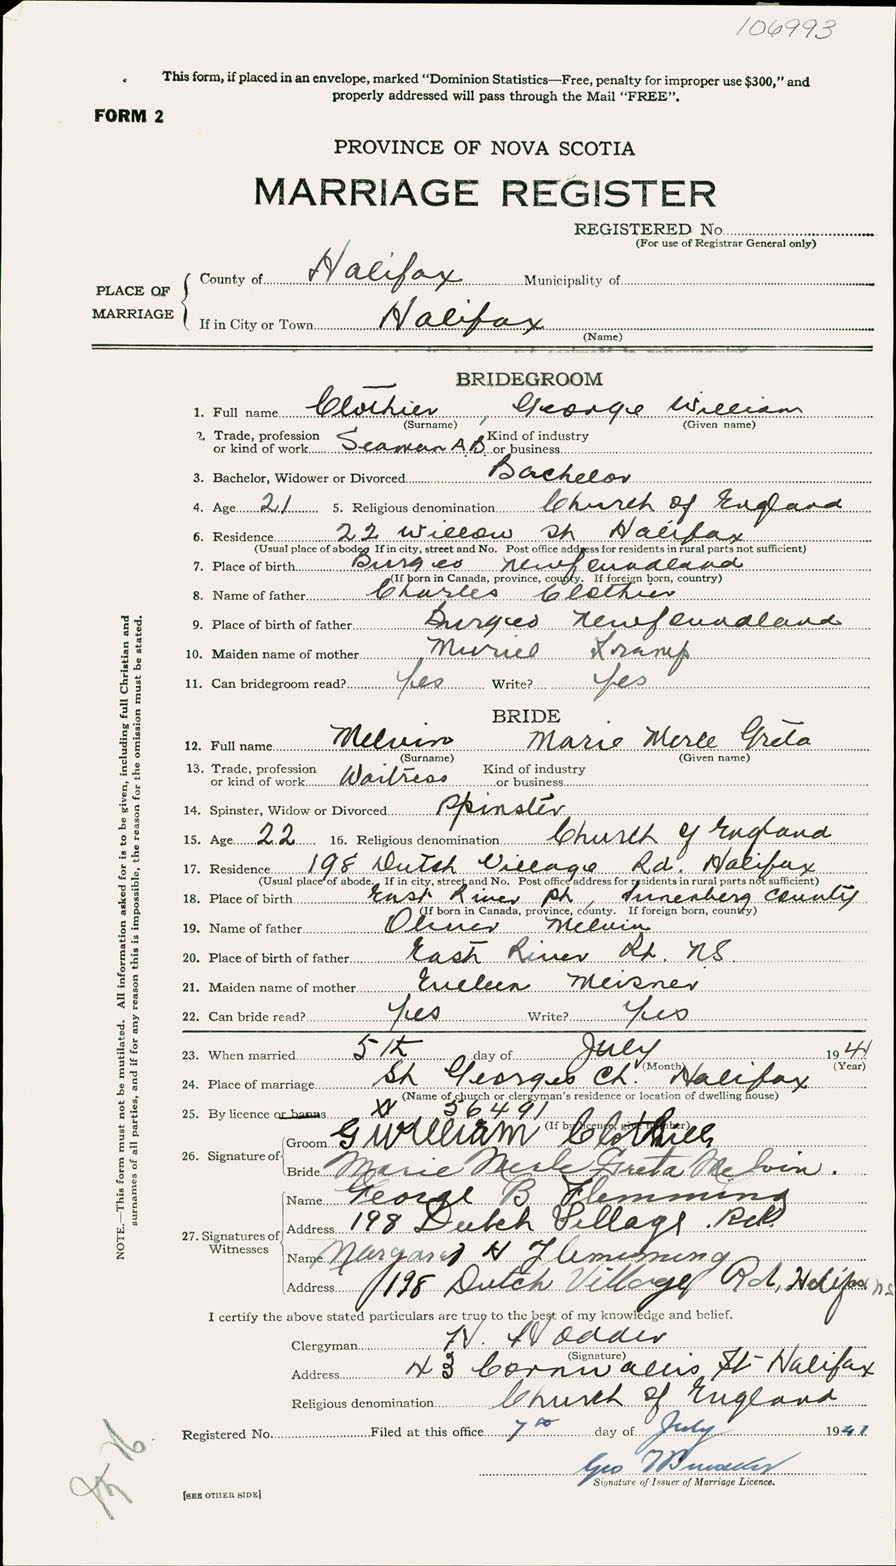 106993
This form, if placed in an envelope, marked "Dominion Statistics—Free, penalty for improper use $300," and
properly addressed will pass through the Mail "FREE".
FORM 2
PROVINCE OF NOVA SCOTIA
MARRIAGE REGISTER
REGISTERED No.
(For use of Registrar General only)
PLACE OF MARRIAGE
County of Halifax Municipality of
If in City or Town Halifax
(Name)
BRIDEGROOM
1. Full name Clothier, George William
(Surname) (Given name)
2. Trade, profession or kind of work Seaman A.B. Kind of industry or business
3. Bachelor, Widower or Divorced Bachelor
4. Age 21 5. Religious denomination Church of England
6. Residence 22 Willow St Halifax
(Usual place of abode. If in city, street and No. Post office address for residents in rural parts not sufficient)
7. Place of birth Burgeo Newfoundland
(If born in Canada, province, county. If foreign born, country)
8. Name of father Charles Clothier
9. Place of birth of father Burgeo Newfoundland
10. Maiden name of mother Muriel
11. Can bridegroom read? Yes Write? Yes
BRIDE
12. Full name Melvin Marie Merle Greta
(Surname) (Given name)
13. Trade, profession or kind of work Waitress Kind of industry or business
14. Spinster, Widow or Divorced Spinster
15. Age 22 16. Religious denomination Church of England
17. Residence 198 Dutch Village Rd. Halifax
(Usual place of abode. If in city, street and No. Post office address for residents in rural parts not sufficient)
18. Place of birth East River Pt, Lunenberg County
(If born in Canada, province, county. If foreign born, country)
19. Name of father Oliver Melvin
20. Place of birth of father East River Pt. NS.
21. Maiden name of mother Eveleen Meisner
22. Can bride read? Yes Write? Yes
23. When married 5th day of July 1941
(Month) (Year)
24. Place of marriage St Georges Ch. Halifax
(Name of church or clergyman's residence or location of dwelling house)
25. By licence or banns 56491
(If by licence, give number)
26. Signature of
Groom G William Clothier
Bride Marie Merle Greta Melvin.
27. Signatures of Witnesses
Name George B Flemming
Address 198 Dutch Village Rd.
Name Margaret H Flemming
Address 198 Dutch Village Rd, Halifax NS
I certify the above stated particulars are true to the best of my knowledge and belief.
Clergyman N. Hodder
(Signature)
Address 43 Cornwallis St Halifax
Religious denomination Church of England
Registered No. Filed at this office 7th day of July 1941
Geo
Signature of Issuer of Marriage Licence.
[SEE OTHER SIDE]
NOTE.—This form must not be mutilated. All information asked for is to be given, including full Christian and
surnames of all parties, and if for any reason this is impossible, the reason for the omission must be stated.